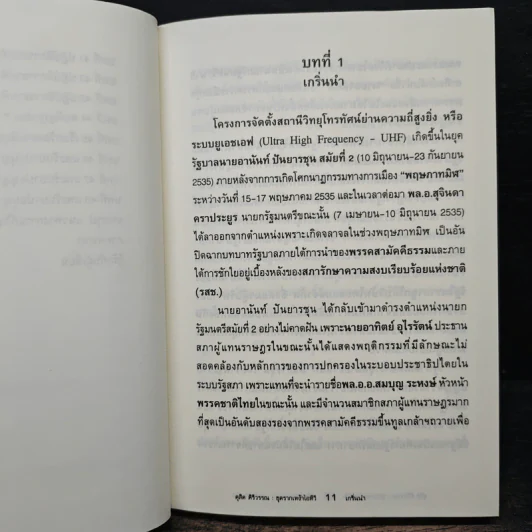 บทที่ 1
เกริ่นนำ
โครงการจัดตั้งสถานีวิทยุโทรทัศน์ย่านความถี่สูงยิ่ง หรือ
ระบบยูเอชเอฟ (Ultra High Frequency - UHF) เกิดขึ้นในยุค
รัฐบาลนายอานันท์ ปันยารชุน สมัยที่ 2 (10 มิถุนายน-23 กันยายน
2535) ภายหลังจากการเกิดโศกนาฏกรรมทางการเมือง "พฤษภาทมิฬ"
ระหว่างวันที่ 15-17 พฤษภาคม 2535 และในเวลาต่อมา พล.อ.สุจินดา
คราประยูร นายกรัฐมนตรีขณะนั้น (7 เมษายน-10 มิถุนายน 2535)
ได้ลาออกจากตำแหน่งเพราะเกิดจลาจลในช่วงพฤษภาทมิฬ เป็นอัน
ปิดฉากบทบาทรัฐบาลภายใต้การนำของพรรคสามัคคีธรรมและภาย
ใต้การชักใยอยู่เบื้องหลังของสภารักษาความสงบเรียบร้อยแห่งชาติ
(รสช.)
นายอานันท์ ปันยารชุน ได้กลับเข้ามาดำรงตำแหน่งนายก
รัฐมนตรีสมัยที่ 2 อย่างไม่คาดฝัน เพราะนายอาทิตย์ อุไรรัตน์ ประธาน
สภาผู้แทนราษฎรในขณะนั้นได้แสดงพฤติกรรมที่มีลักษณะไม่
สอดคล้องกับหลักการของการปกครองในระบอบประชาธิปไตยใน
ระบบรัฐสภา เพราะแทนที่จะนำรายชื่อพล.อ.อ.สมบุญ ระหงษ์ หัวหน้า
พรรคชาติไทยในขณะนั้น และมีจำนวนสมาชิกสภาผู้แทนราษฎรมาก
ที่สุดเป็นอันดับสองรองจากพรรคสามัคคีธรรมขึ้นทูลเกล้าฯถวายเพื่อ
ดุสิต ศิริวรรณ : ขุดรากเหง้าไอทีวี 11 เกริ่นนำ